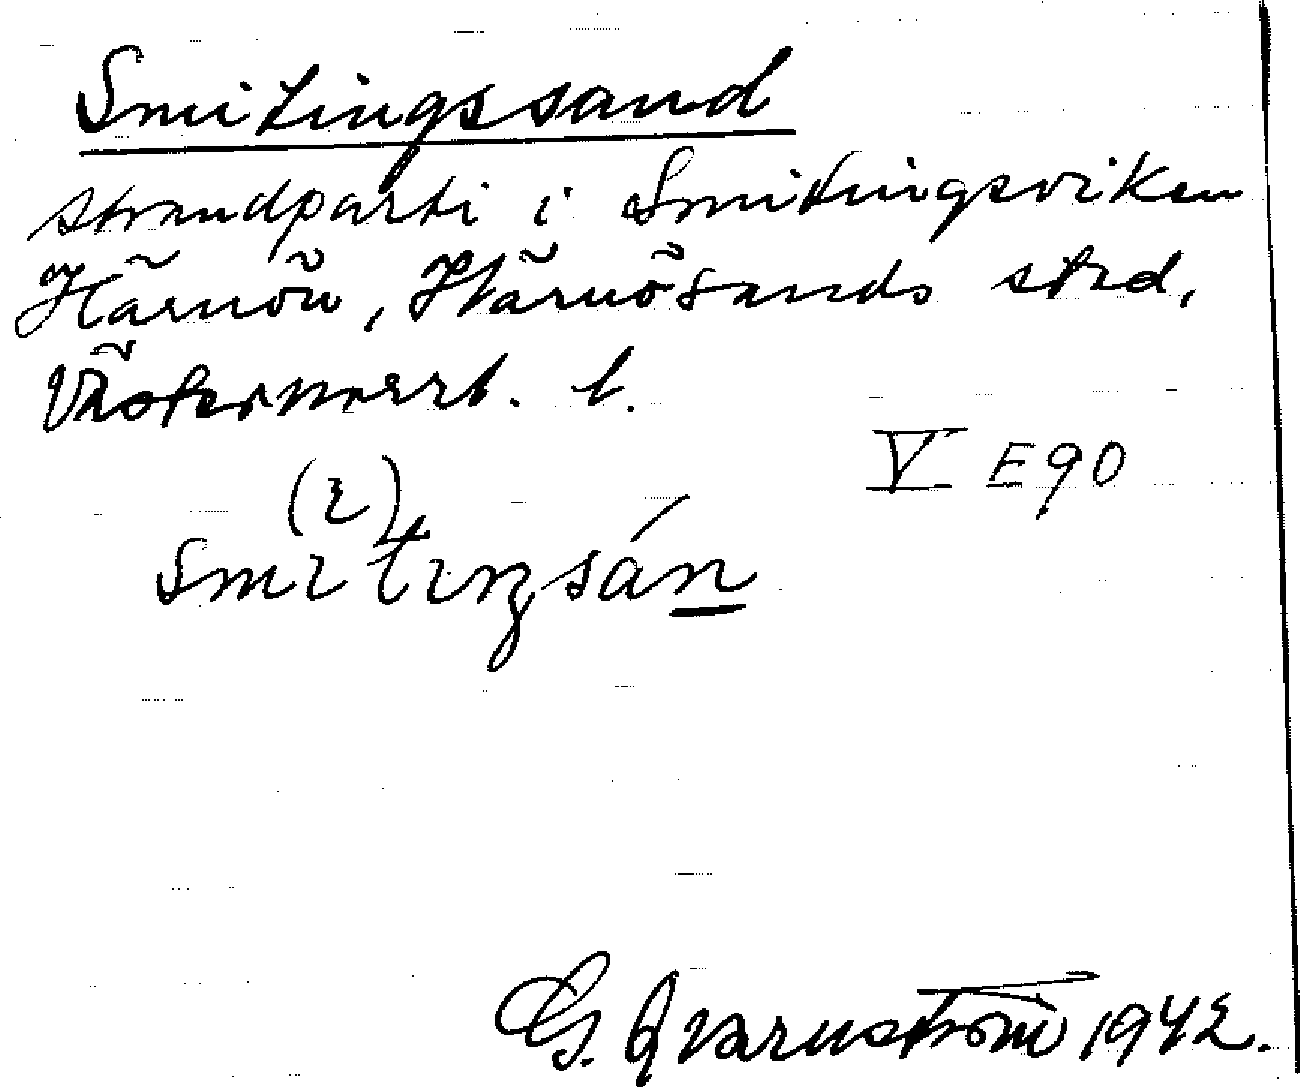 Smitingssand
strandparti i Smitingsviken
Härnön, Härnösands std,
Västernorrl. l.
V E90
(ɩ)
smɩtɩŋsán
G. Qvarnström 1942.